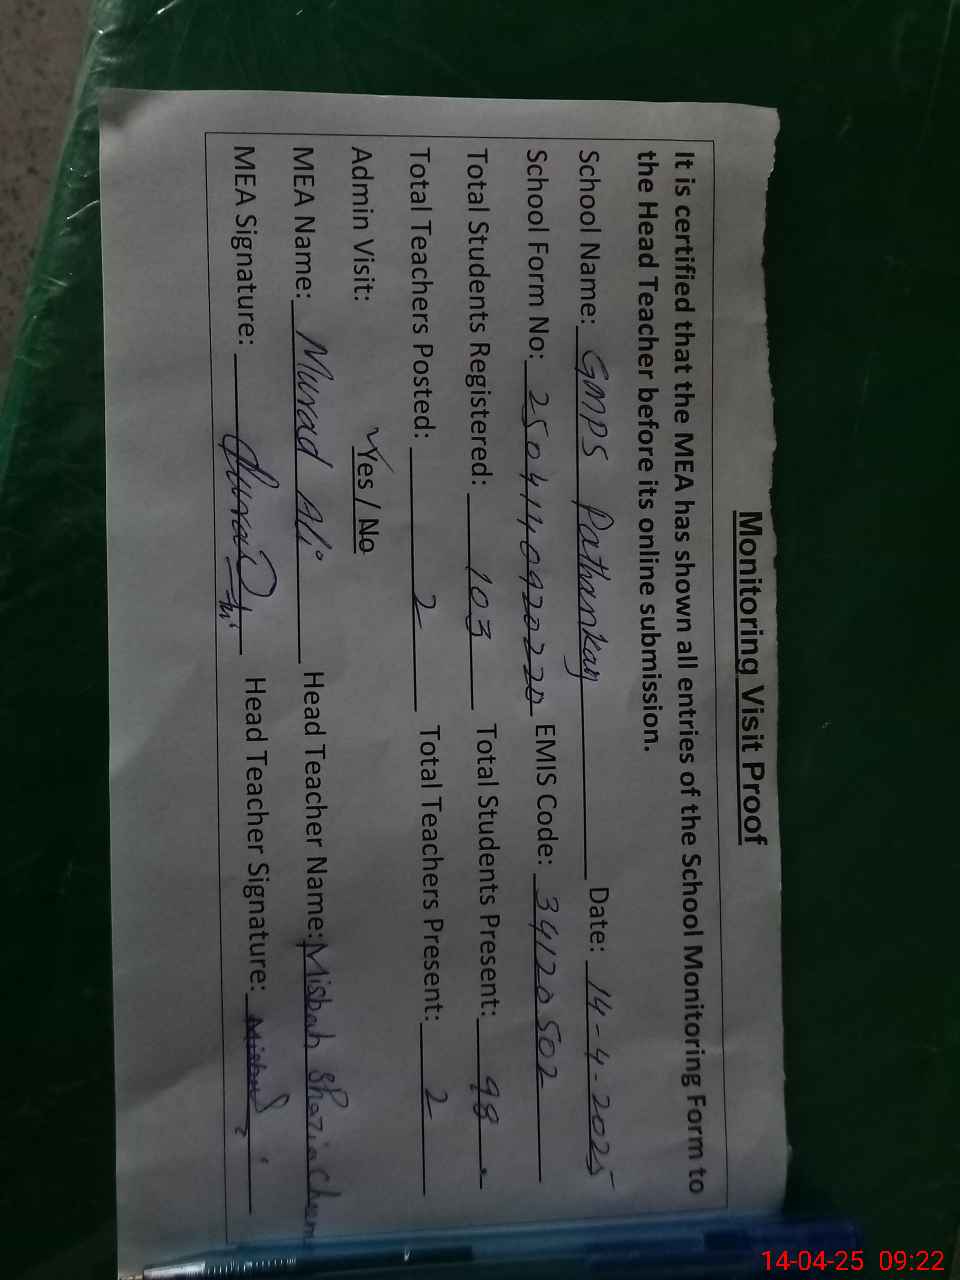 Monitoring Visit Proof
It is certified that the MEA has shown all entries of the School Monitoring Form to
the Head Teacher before its online submission.
School Name: GMPS Pathankay Date: 14-4-2025
School Form No: 25041409202220 EMIS Code: 34120502
Total Students Registered: 103 Total Students Present: 98
Total Teachers Posted: 2 Total Teachers Present: 2
Admin Visit: Yes / No
MEA Name: Murad Ali Head Teacher Name: Misbah Shazia
MEA Signature: Head Teacher Signature: Misbah
14-04-25 09:22